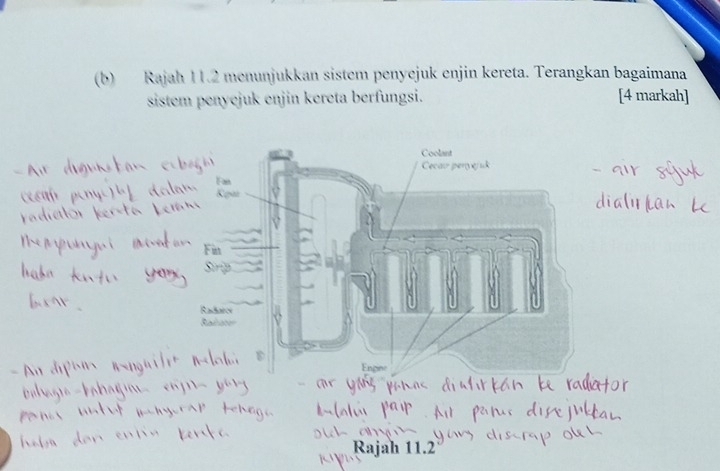 (b) Rajah 11.2 menunjukkan sistem penyejuk enjin kereta. Terangkan bagaimana
sistem penyejuk enjin kereta berfungsi. [4 markah]
- Air digunakan sebagai
cecair penyejuk dalam
radiator kereta kerana
mempunyai muatan
haba tentu yang
besar.
Coolant
Cecair penyejuk
Fan
Kipas
Fin
Sirip
Radiator
Radiator
Engine
Enjin
- air sejuk
dialirkan ke
- Air dipam mengalir melalui
bahagian-bahagian enjin yang
panas untuk menyerap tenaga
haba dari enjin kereta
- air yang panas dialirkan ke radiator
melalui paip. Air panas disejukkan
oleh angin yang diserap oleh
kipas
Rajah 11.2